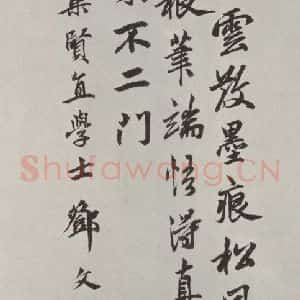 雲散墨痕松
筆端悟得真
不二門
集賢直學士鄧文
Shufawang.CN